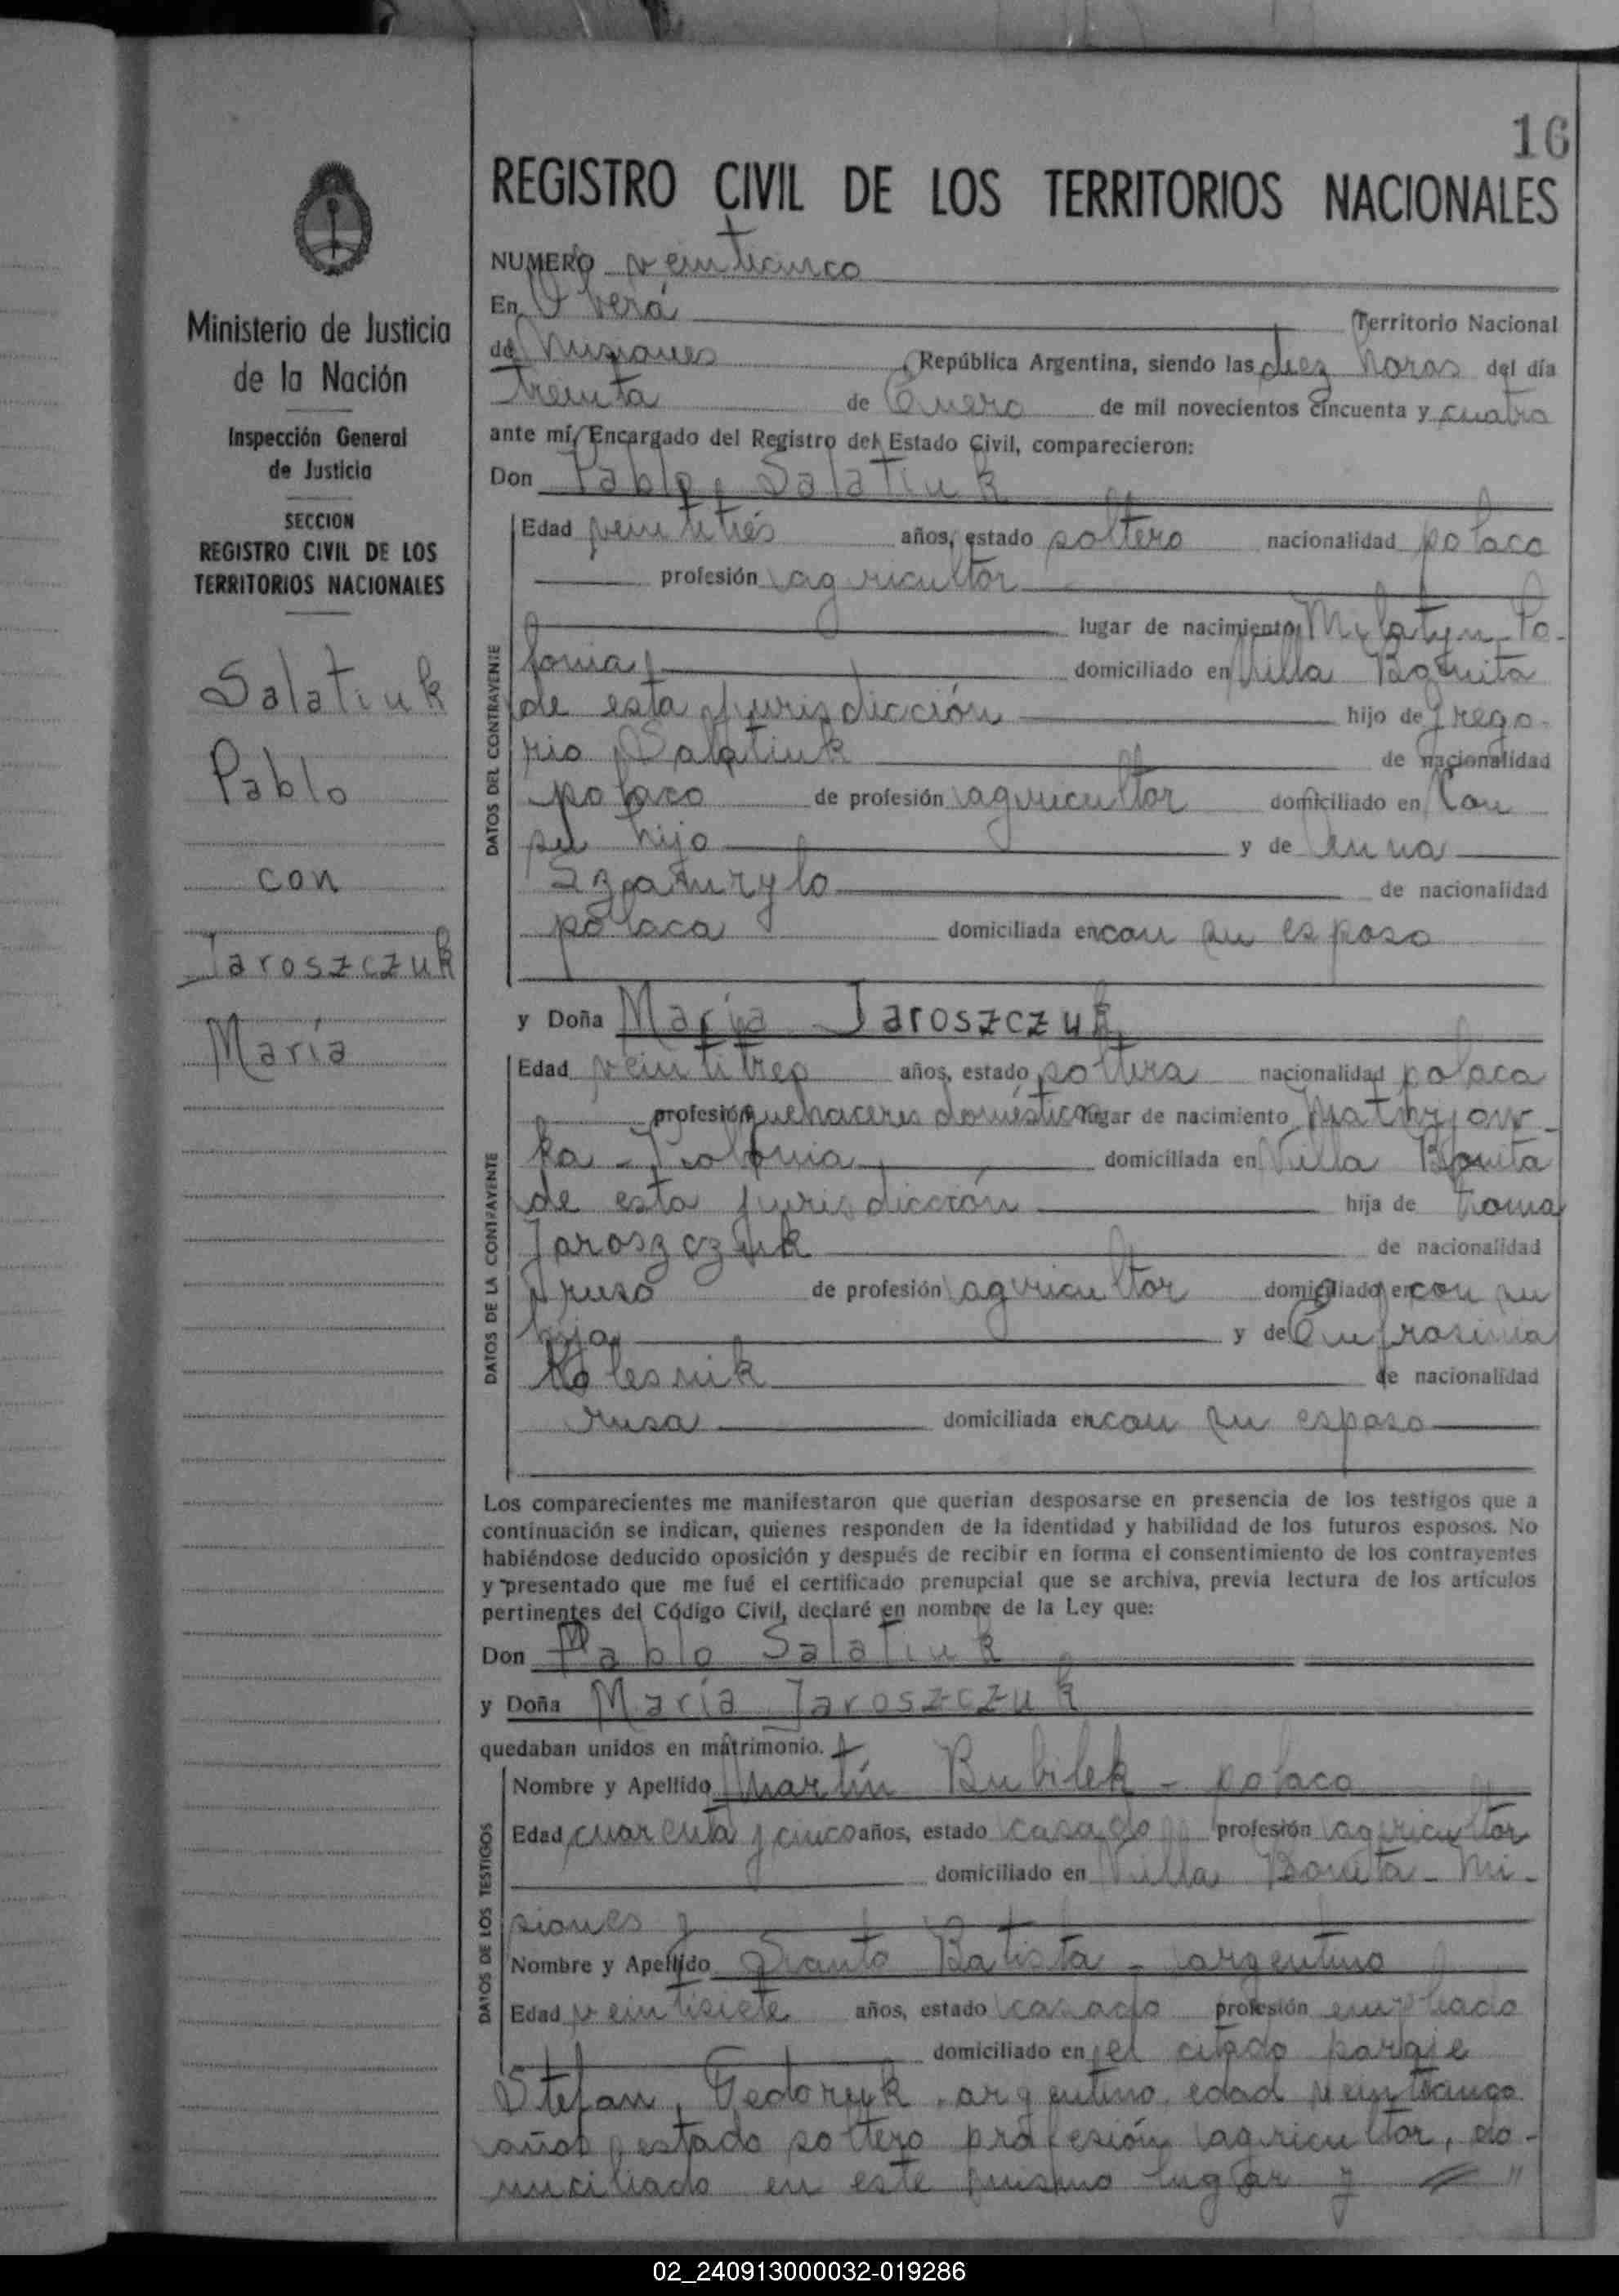 16
REGISTRO CIVIL DE LOS TERRITORIOS NACIONALES
Ministerio de Justicia
de la Nación
Inspección General
de Justicia
SECCION
REGISTRO CIVIL DE LOS
TERRITORIOS NACIONALES
Salatiuk
Pablo
con
Jaroszczuk
María
NUMERO veinticinco
En Oberá Territorio Nacional
de Misiones, República Argentina, siendo las diez horas del día
treinta de Enero de mil novecientos cincuenta y cuatro
ante mí, Encargado del Registro del Estado Civil, comparecieron:
Don Pablo Salatiuk
DATOS DEL CONTRAYENTE
Edad veintitrés años, estado soltero nacionalidad polaco
profesión agricultor
lugar de nacimiento Milatyn-Po-
lonia, domiciliado en Villa Bonita
de esta jurisdicción hijo de Grego-
rio Salatiuk de nacionalidad
polaco de profesión agricultor domiciliado en con
su hijo y de Anna
de nacionalidad
polaca domiciliada en con su esposo
y Doña María Jaroszczuk,
DATOS DE LA CONTRAYENTE
Edad veintitres años, estado soltera nacionalidad polaca
profesión quehaceres domésticos lugar de nacimiento
ka - Polonia, domiciliada en Villa Bonita
de esta jurisdicción hija de Toma
Jaroszczuk de nacionalidad
ruso de profesión agricultor domiciliado en con su
hija y de Eufrosina
Kolesnik de nacionalidad
rusa domiciliada en con su esposo
Los comparecientes me manifestaron que querían desposarse en presencia de los testigos que a
continuación se indican, quienes responden de la identidad y habilidad de los futuros esposos. No
habiéndose deducido oposición y después de recibir en forma el consentimiento de los contrayentes
y presentado que me fué el certificado prenupcial que se archiva, previa lectura de los artículos
pertinentes del Código Civil, declaré en nombre de la Ley que:
Don Pablo Salatiuk
y Doña María Jaroszczuk
quedaban unidos en matrimonio.
DATOS DE LOS TESTIGOS
Nombre y Apellido Martín Bubilek - polaco
Edad cuarenta y cinco años, estado casado profesión agricultor
domiciliado en Villa Bonita - Mi-
siones y
Nombre y Apellido Santo Batista - argentino
Edad veintisiete años, estado casado profesión empleado
domiciliado en el citado paraje
Stefan Fedoruk, argentino, edad veinticinco
años, estado soltero profesión agricultor, do-
miciliado en este mismo lugar y
02_240913000032-019286